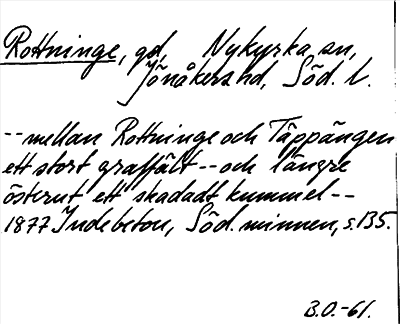 Rottninge, gd, Nykyrka sn,
Jönåkers hd, Söd. l.
-- mellan Rottninge och Täppängen
ett stort graffält -- och längre
österut ett skadadt kummel --
1877 Indebetou, Söd. minnen, s. 135.
B.O.-61.